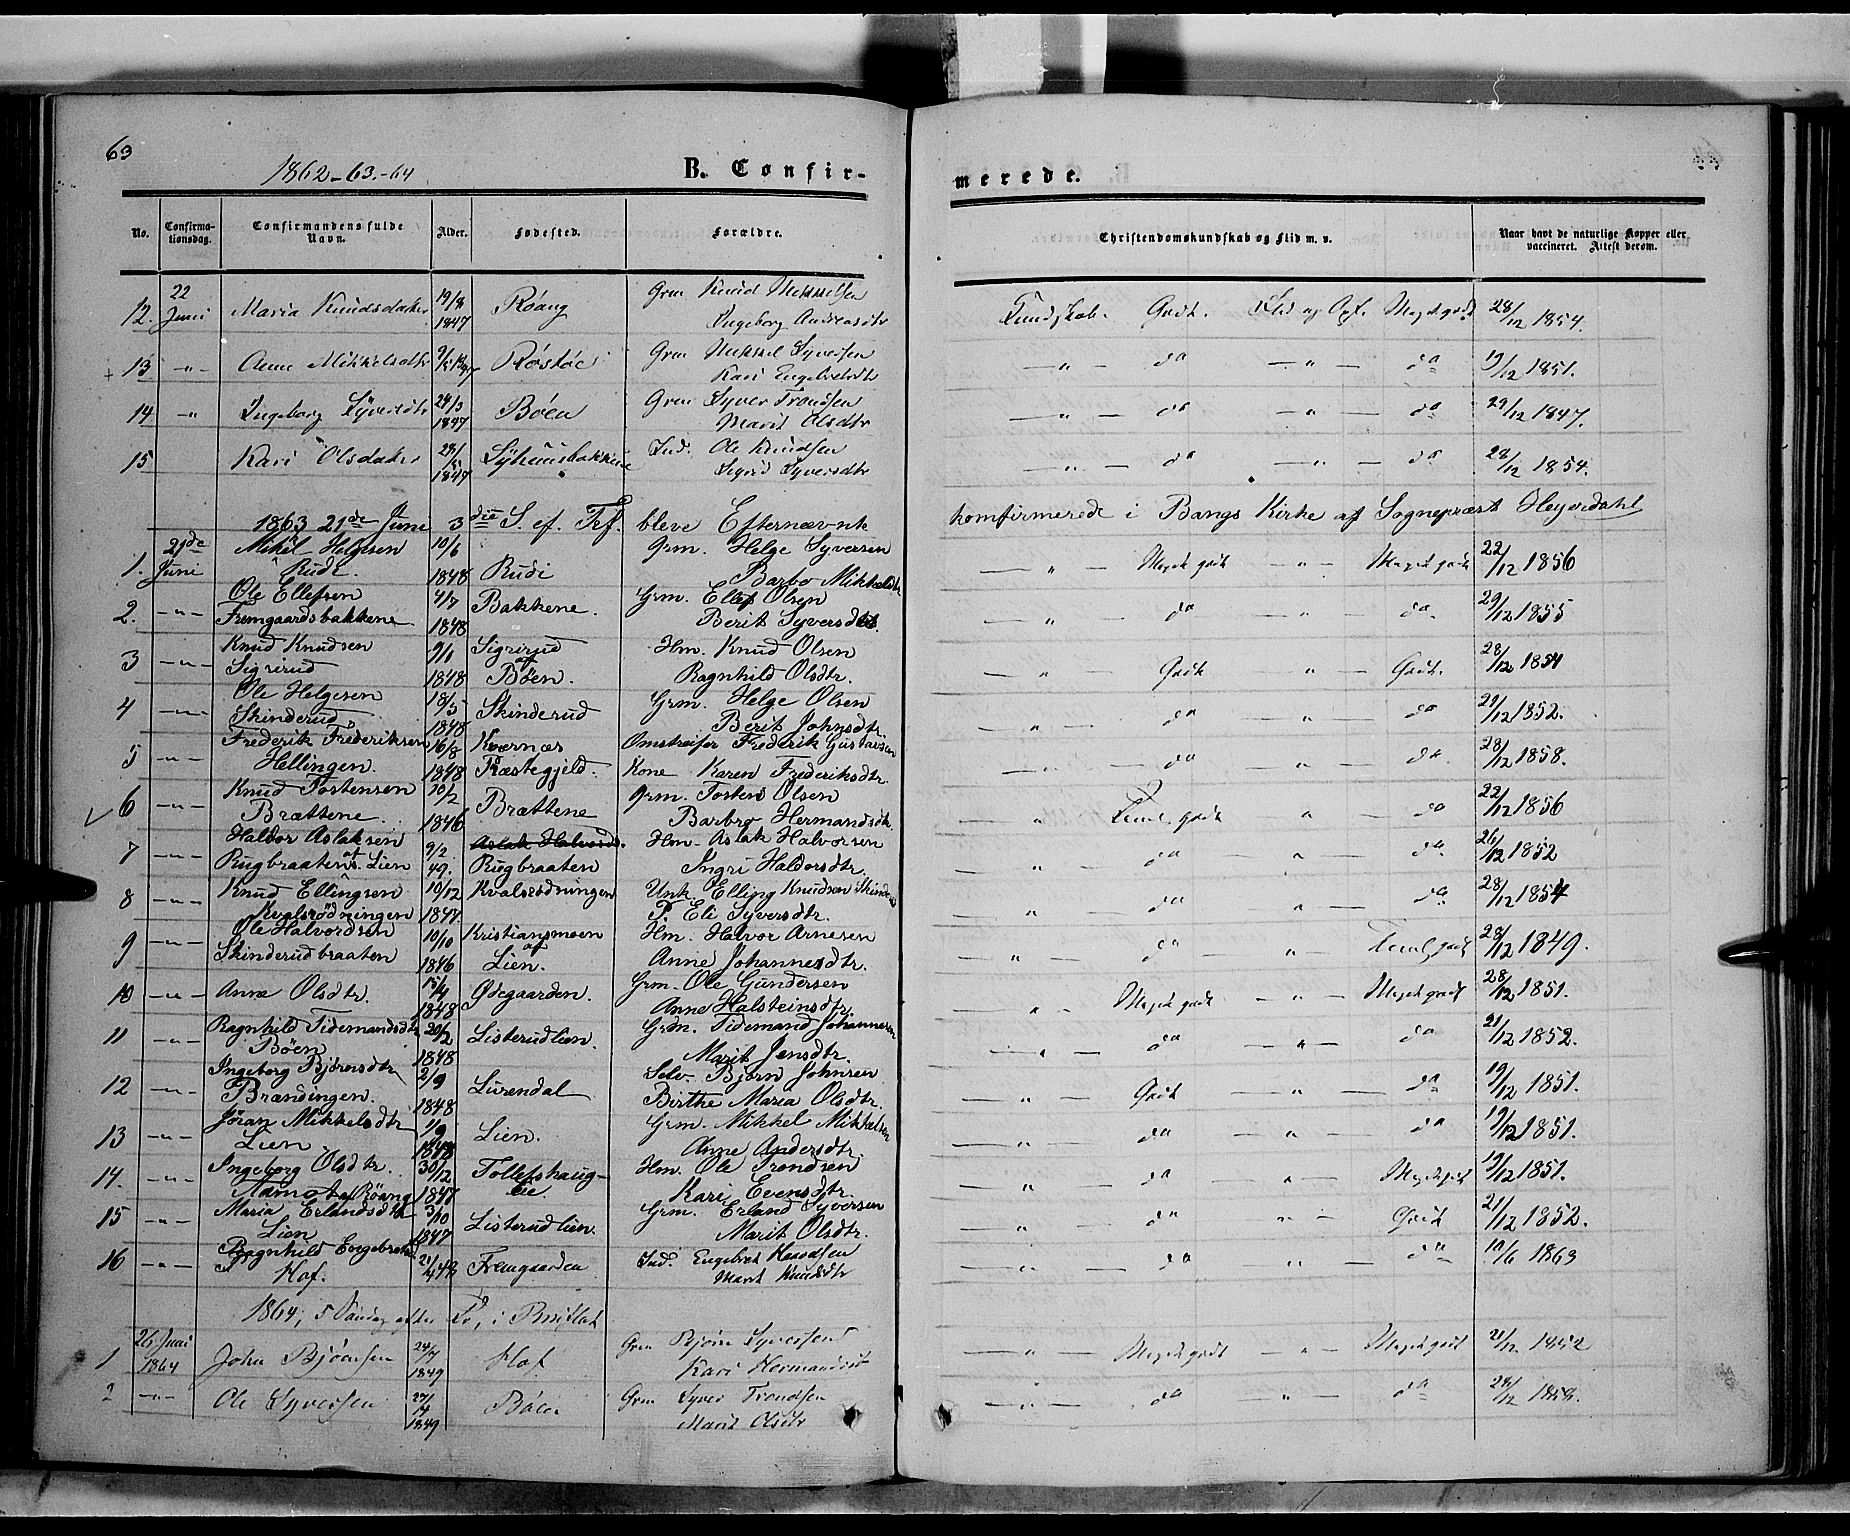 63
1862-63.-64
B. Confir-
merede.
No. Confirma-tionsdag. Confirmandens fulde Navn. Alder. Fødested. Forældre. Christendomskundskab og Flid m. v. Naar havt de naturlige Kopper eller vaccineret. Attest derom.
12. 22 Juni Maria Knudsdatter 19/8 1847 Røang Grm Knud Mikkelsen Ingeborg Andreasdtr Kundskab. Godt. Flid og Opf. Meget godt 28/12 1854.
13 -"- Anne Mikkelsdtr Røstøe Grm Mikkel Syversen Kari Engebretsdtr — " — do — " — do 19/12 1851.
14 -"- Ingeborg Syversdtr 24/3 1847 Bøen Grm Syver Trondsen Marit Olsdtr — " — do — " — do 29/12 1847.
15 Kari Olsdatter 1847 Ind. Ole Knudsen Sigrid Syversdtr — " — do — " — do 28/12 1854.
1863 21de Juni 3die S. ef. Tref. bleve Efternævnte komfirmerede i Bangs Kirke af Sognepræst Heyerdahl
1. 21de Juni Mikel Helgesen Rude 10/6 1848 Rudi Grm. Helge Syversen Barbo Mikkelsdtr — " — Meget godt — " — Meget godt 22/12 1856
2. -"- Ole Ellefsen Fremgaardsbakkene 4/7 1848 Bakkene. Grm. Ellef Olsen Berit Syversdtr. — " — do " — do 29/12 1855
3 -"- Knud Knudsen Sigrirud 9/1 1848 Sigrirud Bøen. Hm. Knud Olsen Ragnhild Olsdtr. — " — Godt " — Godt. 28/12 1854
4 -"- Ole Helgesen Skinderud 18/5 1848 Skinderud Grm. Helge Olsen Berit Johnsdtr. " — do " — do 21/12 1852.
5 -"- Frederik Frederiksen Hellingen. 16/8 1848 Kværnæs Præstegjeld. Omstreifer Frederik Gustavsen Kone Karen Frederiksdtr. — " — do " — do. 28/12 1858.
6 -"- Knud Tostensen Brættene. 10/2 1846 Brættene Grm. Tosten Olsen Barbro Hermandsdtr. " Teml. godt " — do 22/12 1856
7 -"- Haldor Aslaksen Rugbraaten af Lien 9/2 49. Aslak Halvords. Rugbraaten Hm. Aslak Halvorsen Ingri Haldorsdtr. " — do " — do 26/12 1852
8 -"- Knud Ellingsen Kvalsrødningen 10/12 1847. Kvalsrødningen Unk. Elling Knudsen P. Eli Syversdtr. " — do " — do 28/12 1854
9 -"- Ole Halvordsen Skinderudbraaten 10/10 1846 Kristiansmoen af Lien. Hm. Halvor Arnesen Anne Johannesdtr. — " — do " — Teml godt 28/12 1849.
10 -"- Anne Olsdtr. 15/4 1848 Ødegaarden. Grm. Ole Gundersen Anne Halsteinsdtr. " — Meget godt — " — Meget godt 28/12 1851.
11 -"- Ragnhild Tidemandsdtr Bøen 20/2 1848 Listerudlien. Grm. Tidemand Johannesen Marit Jensdtr. — " — do — " — do 21/12 1852.
12 -"- Ingeborg Bjørnsdtr Brændingen. 2/9 1848 Lurendal Selv. Bjørn Johnsen Birthe Maria Olsdtr. — " — Godt " — do 19/12 1851.
13 -"- Jøran Mikkelsdtr Lien. 1/9 1848 Lien. Grm. Mikkel Mikkelsen Anne Andersdtr. " — do " — do 19/12 1851.
14. -"- Ingeborg Olsdtr. af Røang 30/12 1847 Tollefshaug-Eie Hm. Ole Trondsen Kari Evensdtr. " — do " — Meget godt 19/12 1851.
15 -"- Maria Erlandsdtr Lien 3/10 1847 Listerudlien. Grm. Erland Syversen Marit Olsdtr. " — do " — Godt 21/12 1852.
16 -"- Ragnhild Engebretsd. Hof. 21/4 48 Fremgaarden Ind. Engebret Knudsen Marit Knudsdtr " — do " — do 10/6 1863
1864, 5 Søndag efter
1 26 Juni 1864 John Bjørnsen 24/7 1849 Hof Grm Bjørn Syversen Kari Hermandsdtr — " — Meget godt — " — Meget godt 21/12 1852
2 -"- Ole Syversen 1849 Bøen Grm Syver Trondsen Marit Olsdtr — " — do " — do 28/12 1858.